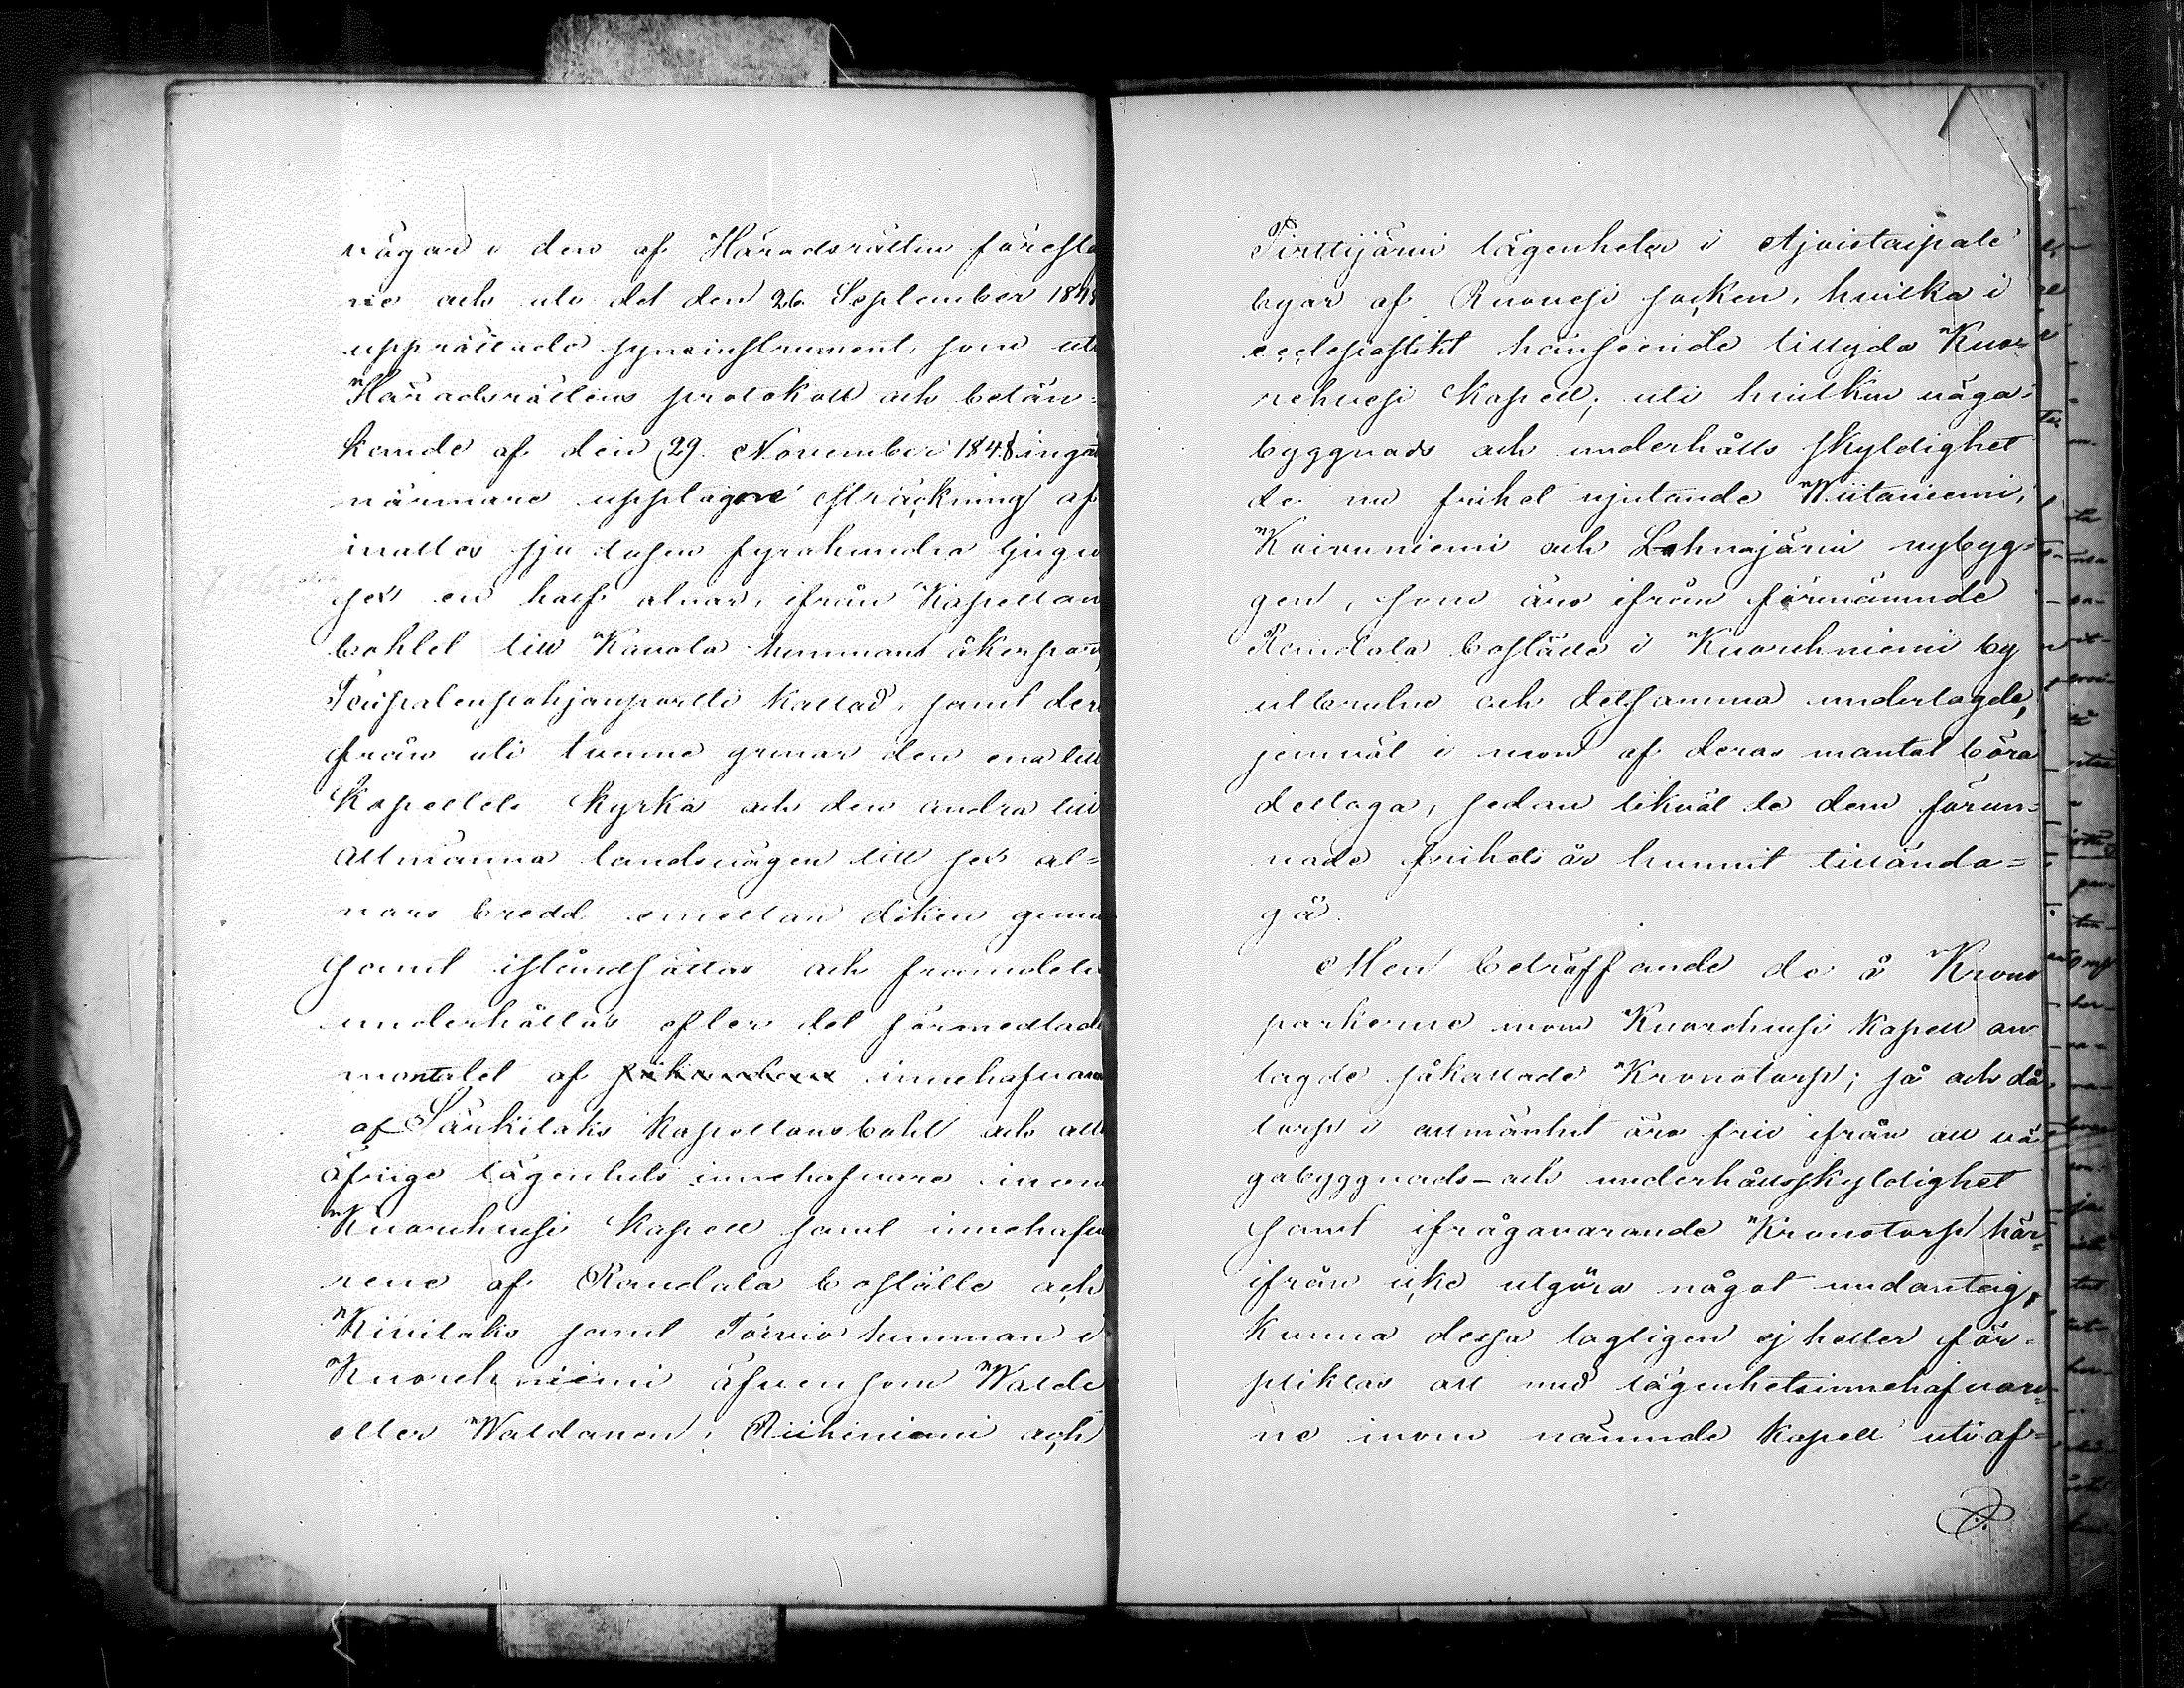 vägar i den af Häradsrätten föresla
ne och uti det den 26. September 184
upprättade synsinstrument, som uti
Häradsrättens protokoll och betän=
kande af den 29. November 1848 ingå
närmare upptagne sträckning af
inalles sju tusen fyrahundra tjugu
sex en half alnar, ifrån Kapellans
bohlet till Kauala hemmans åkerport,
Taipalenpohjanportti kallad, samt der
ifrån uti tvenne grenar den ena till
Kapellets kyrka och den andra till
allmänna landsvägen till sex al=
nars bredd emellan diken genem
samt iståndsättas och framdeles
underhållas efter det förmedlade
mantalet af innehafvaren
af Särkilaks Kapellansbohl och alle
öfrige lägenhets innehafvare inom
Kuorehvesi Kapell samt innehafva
rene af Randala boställe och
Kiviilaks samt Torvio hemman i
Kuorehniemi äfvensom Walde
eller Waldanen, Riihiniemi och
Pirttijärvi lägenheter i Ajoistaipale
byar af Ruovesi socken, hvilka i
ecclesiastikt hänseende tillyda Kuo=
rehvesi Kapell; uti hvilken väga=
byggnads och underhålls skyldighet
de nu frihet njutande Wiitaniemi,
Koivuniemi och Lehnajärvi nybyg=
gen, som äro ifrån förenämnde
Randala boställe i Kuorehniemi by
utbrutne och detsamma underlagde,
jemväl i mon af deras mantal böra
deltaga, sedan likväl de dem förun=
nade frihets år hunnit tilländа=
gå.
Men beträffande de å Krono
parkerne inom Kuorehvesi Kapell an
lagde såkallade Kronotorp; så och då
torp i allmänhet äro frie ifrån all vä
gabyggnads- och underhållsskyldighet
samt ifrågavarande Kronotorp här=
ifrån icke utgöra något undantag,
kunna dessa lagligen ej heller för=
pliktas att med lägenhetsinnehafvare=
ne inom nämnde Kapell uti af=